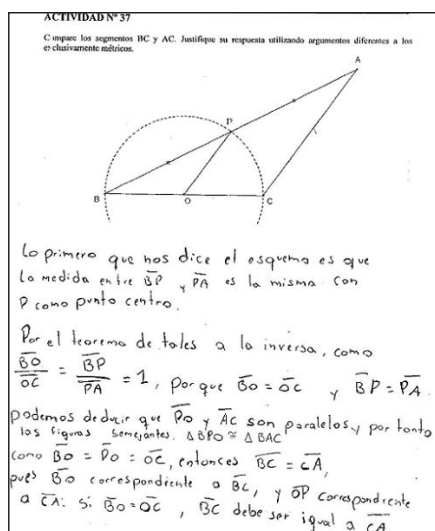 ACTIVIDAD Nº 37
Compare los segmentos BC y AC. Justifique su respuesta utilizando argumentos diferentes a los
exclusivamente métricos.
A
P
B
O
C
Lo primero que nos dice el esquema es que
la medida entre B̅P̅ y P̅A̅ es la misma con
P como punto centro.
Por el teorema de tales a la inversa, como
B̅O̅/O̅C̅ = B̅P̅/P̅A̅ = 1, porque B̅O̅ = O̅C̅ y B̅P̅ = P̅A̅.
podemos deducir que P̅O̅ y A̅C̅ son paralelos y por tanto
las figuras semejantes. △BPO ≅ △BAC
como B̅O̅ = P̅O̅ = O̅C̅, entonces B̅C̅ = C̅A̅,
pues B̅O̅ correspondiente a B̅C̅, y O̅P̅ correspondiente
a C̅A̅: si B̅O̅ = O̅C̅, B̅C̅ debe ser igual a C̅A̅